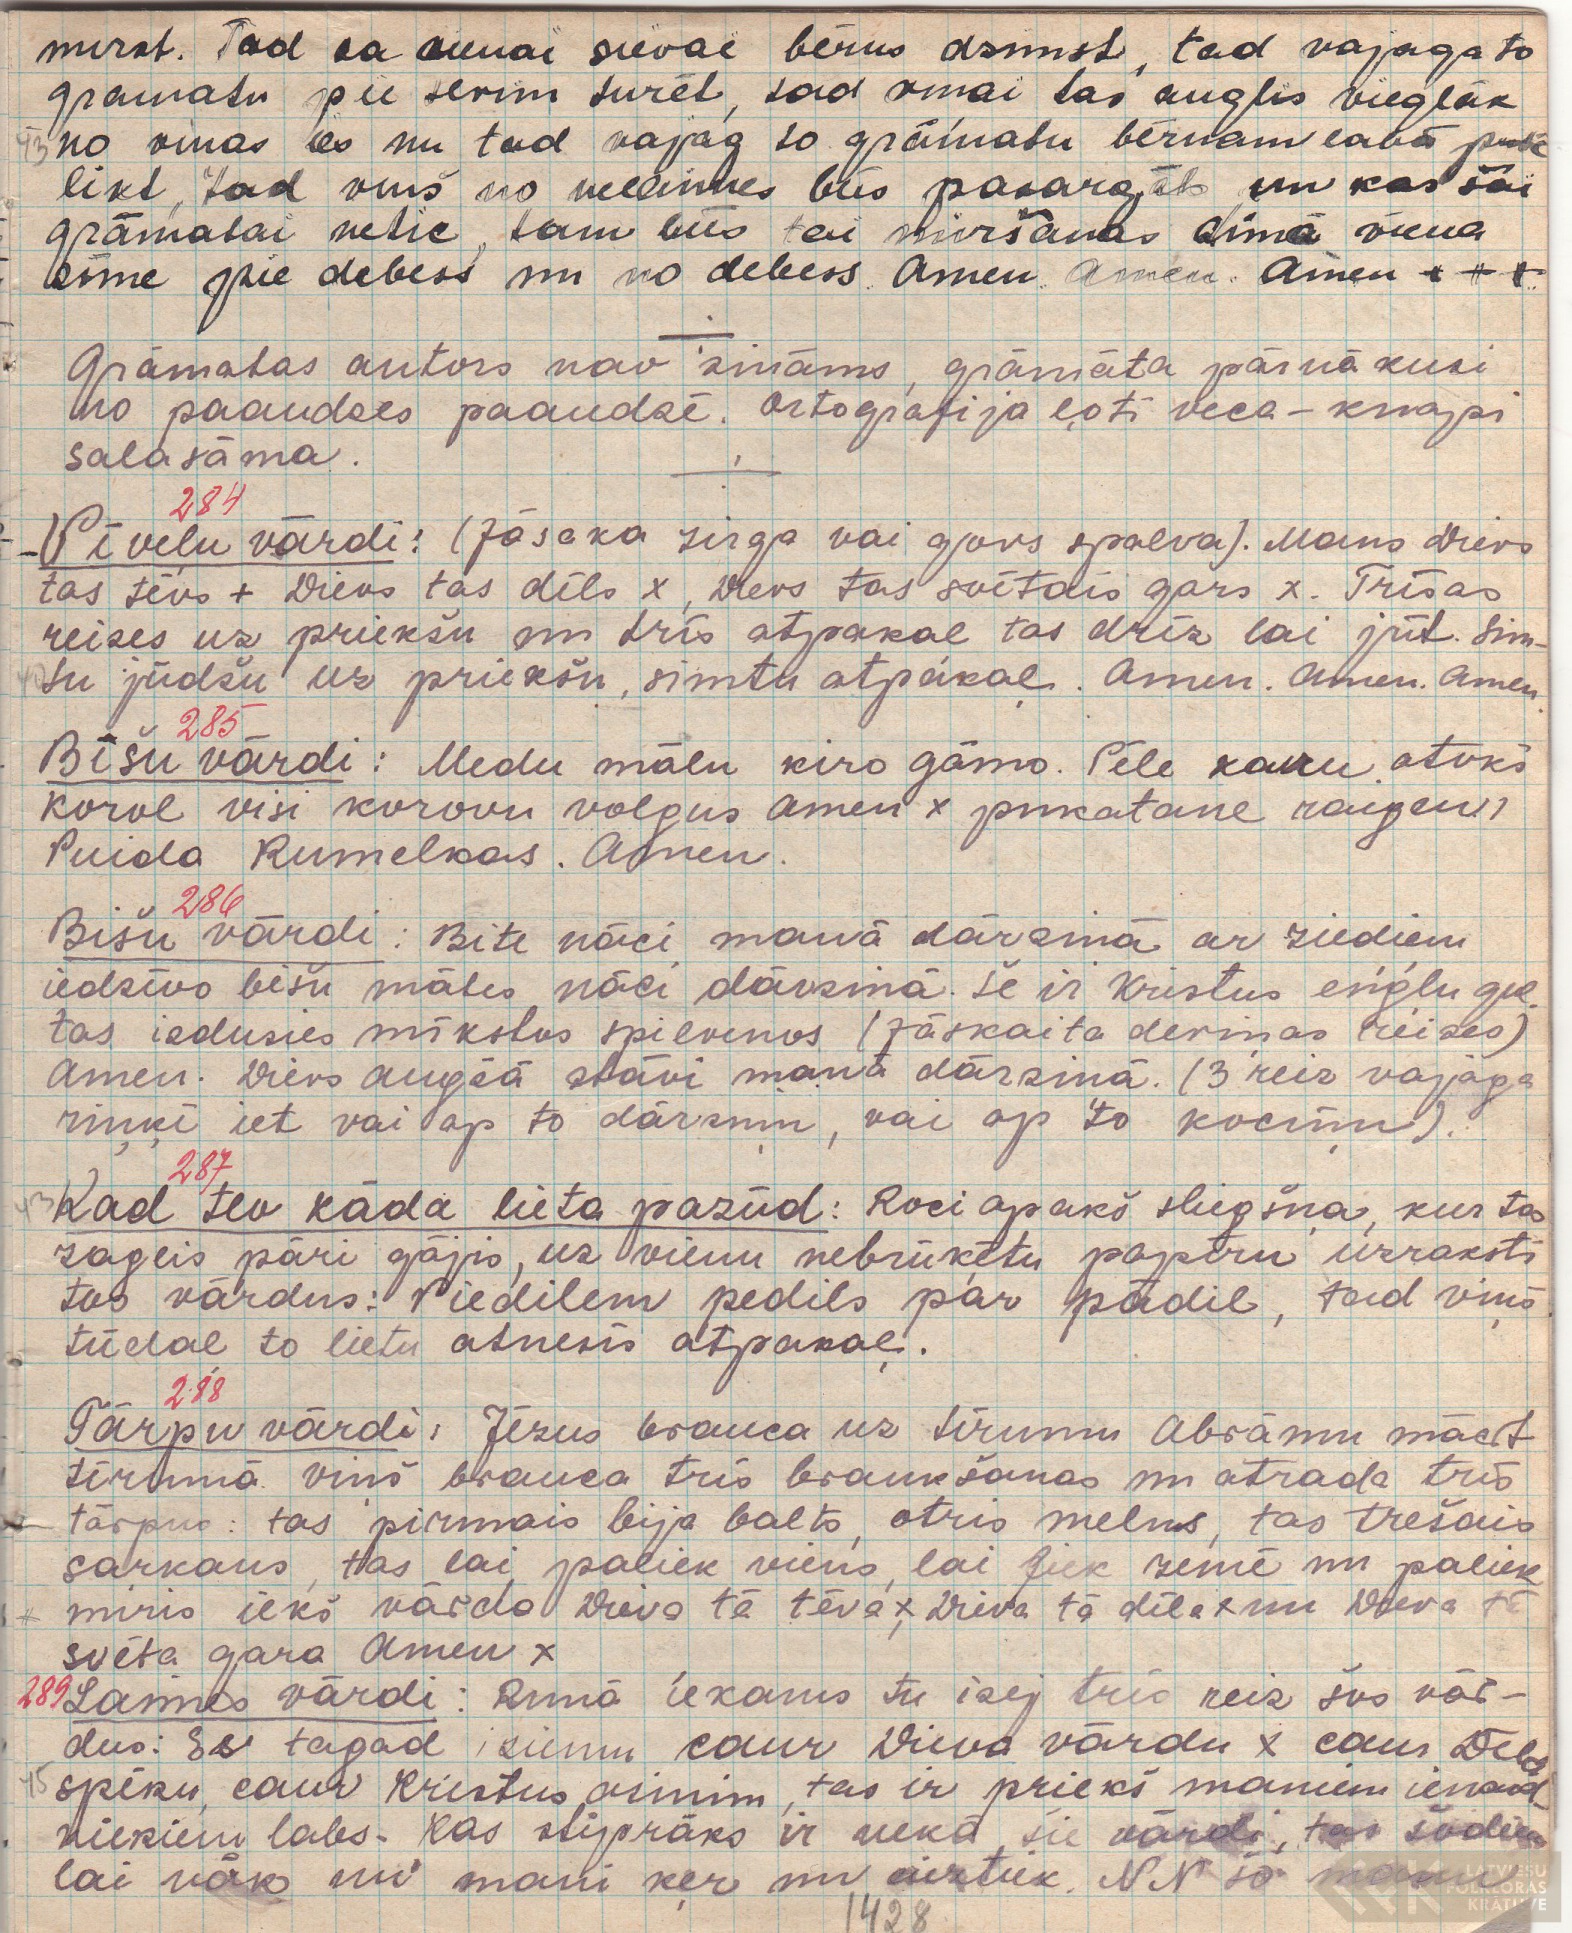 mirst. Tad ka vienai sievai bērns dzimst, tad vajaga to
gramatu pie turēt, tad viņai tas auglis vieglāk
no viņas ies un tad vajag to grāmatu bērnam labā pusē
likt, tad viņš no nelaimes būs pasargāts un kas šai
grāmatai netic, tam būs tai miršanas zīmē viena
zīme pie debess un no debess. Amen. Amen. Amen + + +
Grāmatas autors nav zināms, grāmata pārnākusi
no paaudzes paaudzē. Ortografija ļoti veca – knapi
salasāma.
284
Vīveļu vārdi: (Jāsaka zirga vai govs spalva). Mans Dievs
tas tēvs + Dievs tas dēls x, Dievs tas svētais gars x. Trīsas
reizes uz priekšu un trīs atpakaļ tas drīz lai jūt. Sim-
tu jūdžu uz priekšu, simtu atpakaļ. Amen. Amen. Amen.
285
Bišu vārdi: Medu mālu kiro gāmo. Pēle kavu atoks
korol visi korovu volgus amen x pukatane raigeni
Puida Rumelkas. Amen.
286
Bišu vārdi: Bite nāci manā dārziņā ar ziediem
iedzīvo bišu mātes nāci dārziņā. Še ir Kristus eņģļu gul-
tas iedusies mīkstos spilvenos (jāskaita deviņas reizes)
Amen. Dievs augšā stāvi manā dārziņā. (3 reiz vajaga
riņķī iet vai ap to dārziņu, vai ap to kociņu).
287
Kad tev kāda lieta pazūd: Roci apakš sliegšņa, kur tas
zaglis pāri gājis, uz vienu nebrūķētu papīru uzraksti
tos vārdus: Piedilem pedils par padil, tad viņš
tūdaļ to lietu atnesīs atpakaļ.
288
Tārpu vārdi: Jēzus brauca uz tīrumu Abrāmu mācīt
tīrumā viņš brauca trīs braukšanas un atrada trīs
tārpus: tas pirmais bija balts, otris melns, tas trešais
sarkans, tas lai paliek viens, lai tiek zemē un paliek
miris iekš vārda Dieva tā tēva x, Dieva tā dēla x un Dieva tā
svēta gara Amen x
289 Laimes vārdi: Runā iekams tu izej trīs reiz šos vār-
dus: Es tagad izienu caur Dieva vārdu x caur Dieva
spēku, caur Kristus asinīm, tas ir priekš maniem ienaid-
niekiem labs. Kas stiprāks ir nekā šie vārdi, tas šodien
lai nāk un mani ķer un aiztiek. NN šo manu
1428
LATVIEŠU
FOLKLORAS
KRĀTUVE